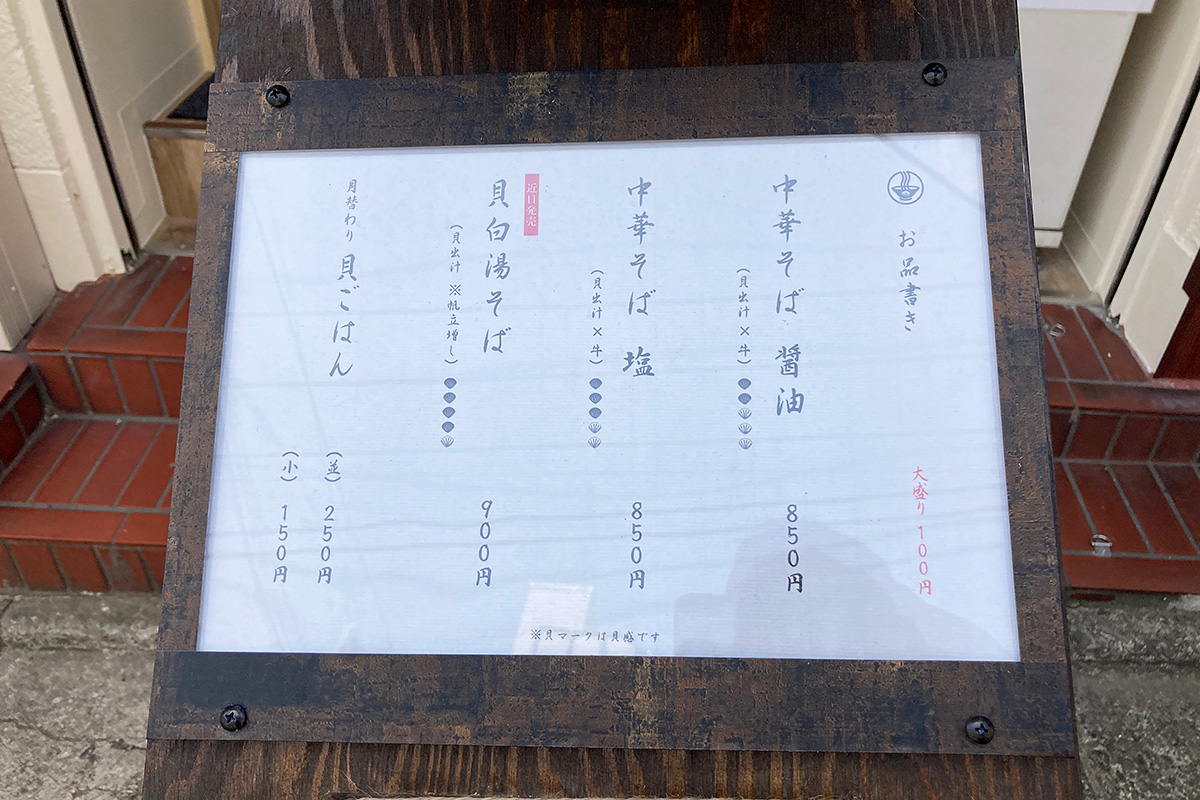 お品書き
大盛り 100円
中華そば 醤油
(貝出汁×牛)
850円
中華そば 塩
(貝出汁×牛)
850円
近日発売
貝白湯そば
(貝出汁 ※帆立増し)
900円
月替わり 貝ごはん
(並) 250円
(小) 150円
※貝マークは貝感です